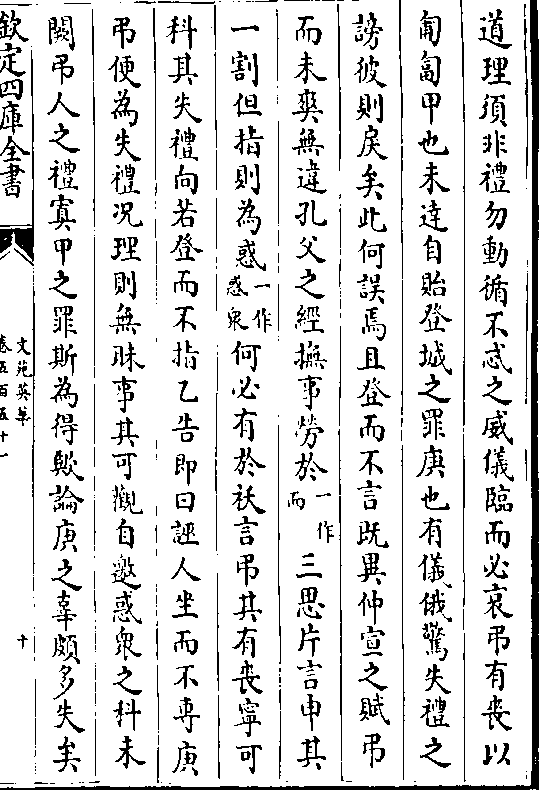 道理須非禮勿動循不忒之威儀臨而必哀弔有喪以
匍匐甲也未逹自貽登城之罪庚也有儀俄驚失禮之
謗彼則戾矣此何誤焉且登而不言既異仲宣之賦弔
而未爽無違孔父之經撫事勞於一作而三思片言申其
一割但指則為惑一作惑衆何必有於祅言弔其有喪寧可
科其失禮向若登而不指乙告即曰誣人坐而不專庚
弔便為失禮况理則無昧事其可觀自邀惑衆之科未
闕弔人之禮寘甲之罪斯為得歟論庚之辜頗多失矣
欽定四庫全書
文苑英華
卷五百五十一
十